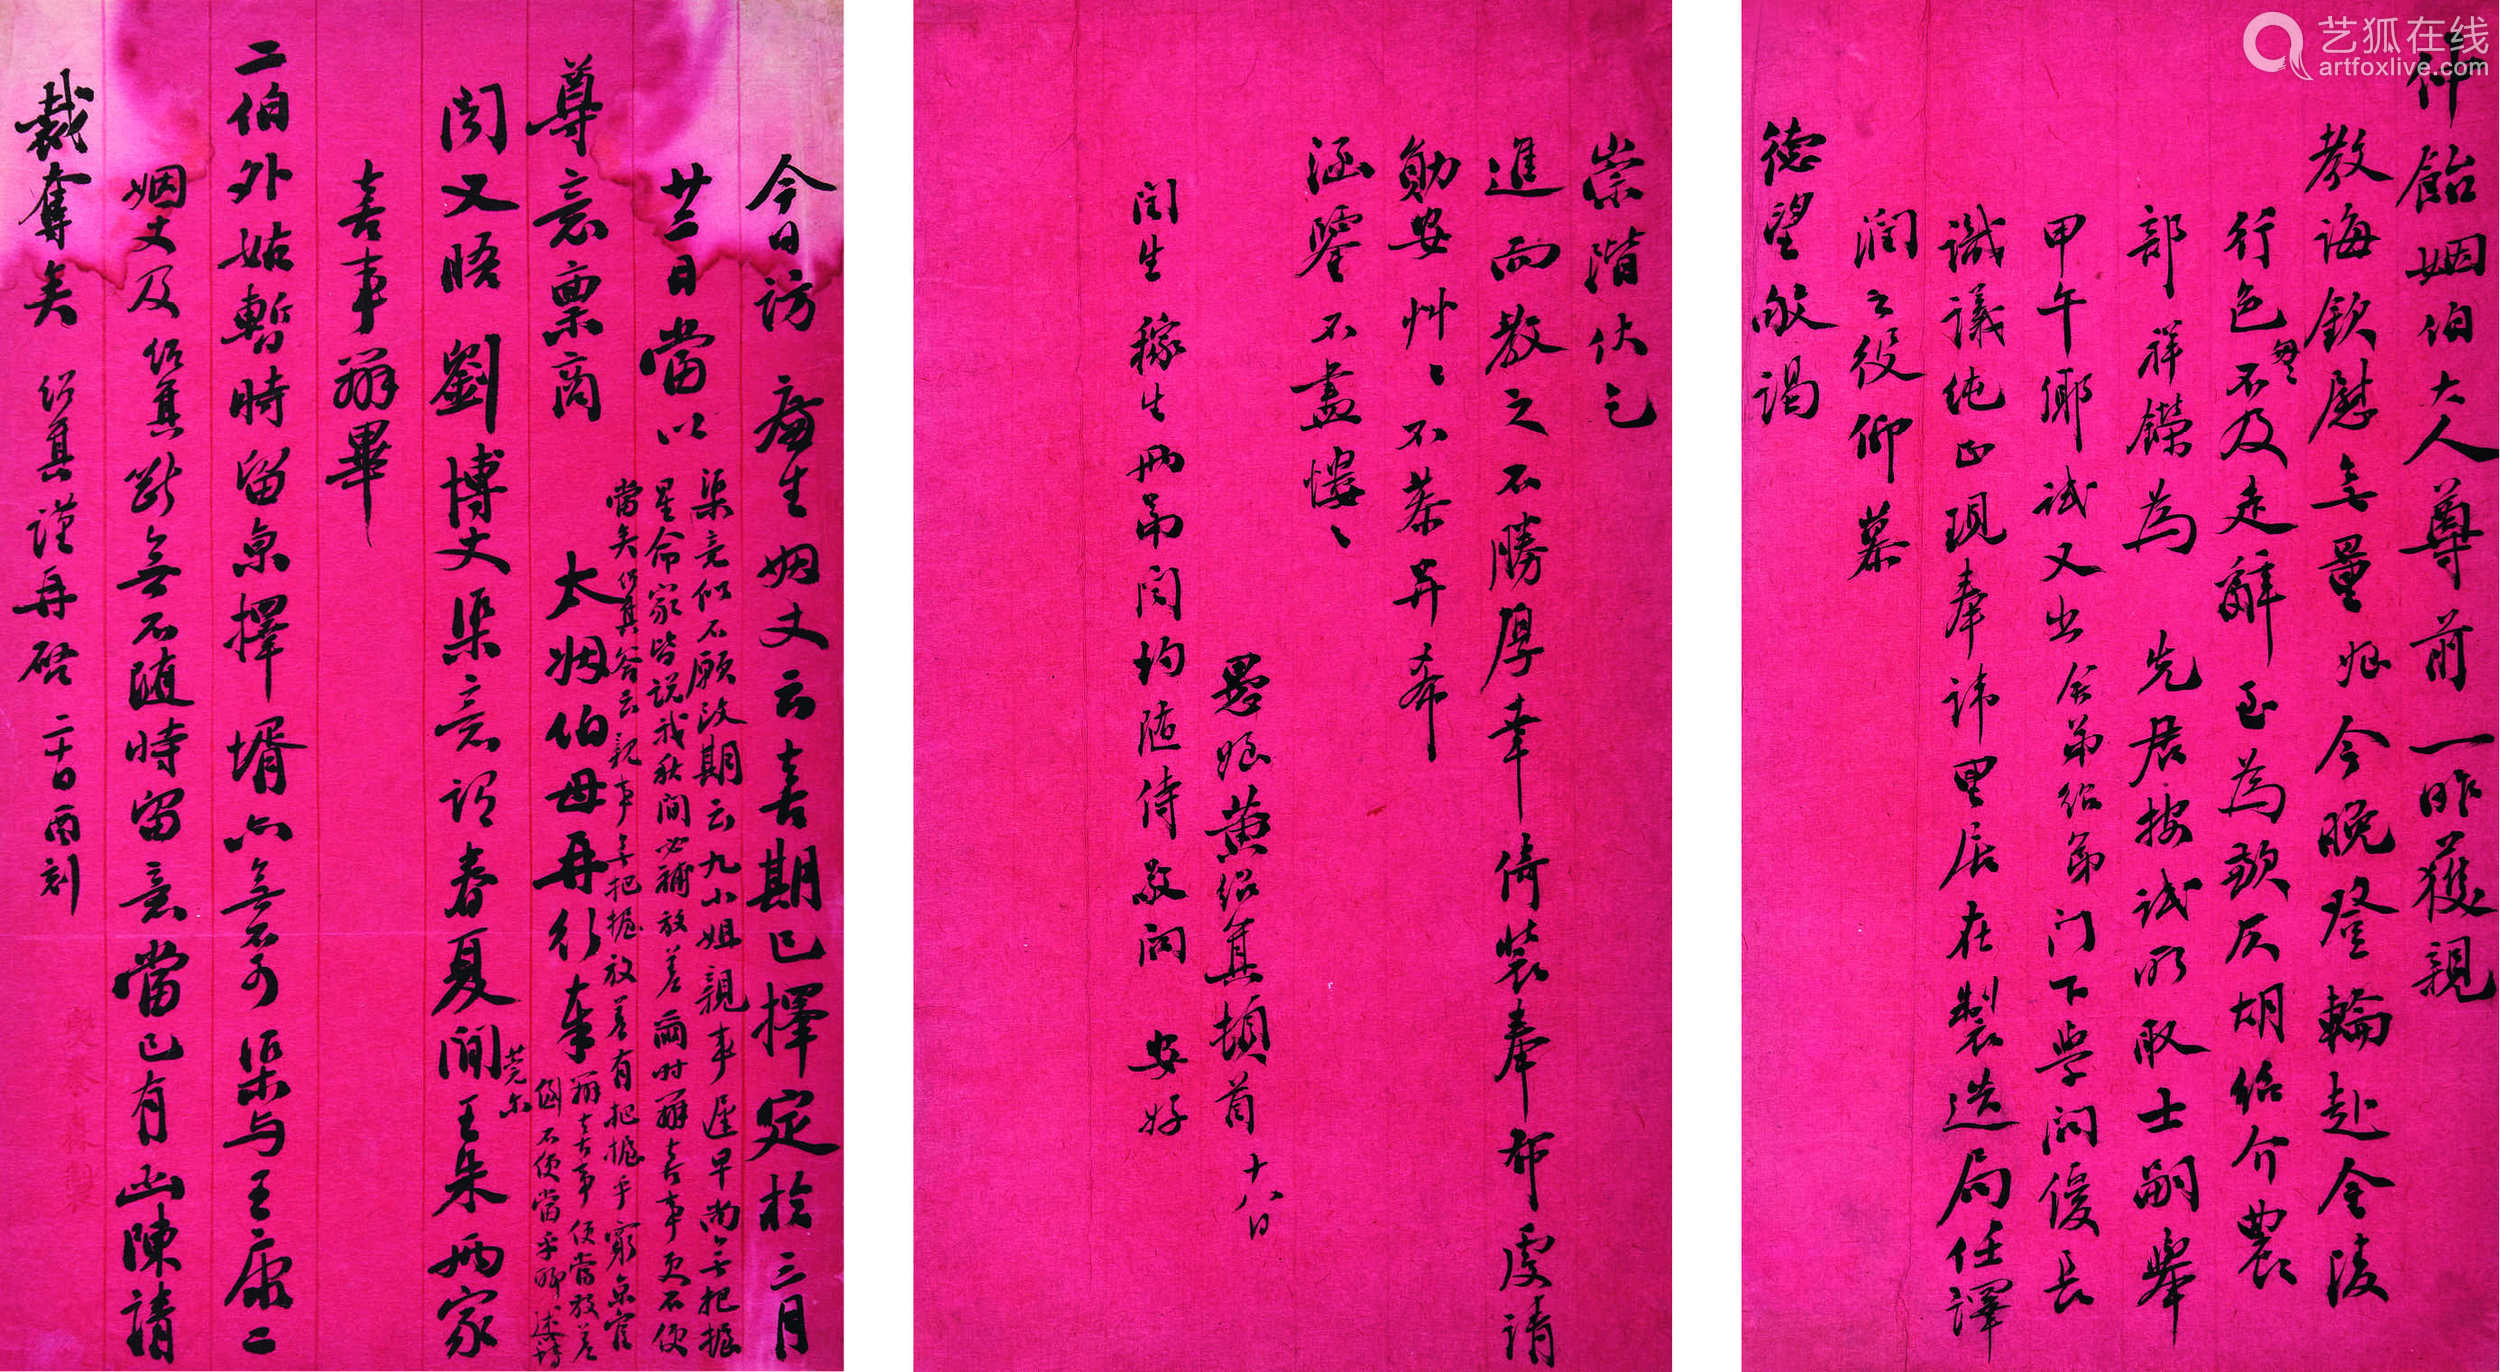 艺狐在线
artfoxlive.com
仲飴姻伯大人尊前一昨獲親
教誨欽慰無量姪今晚登輪赴金陵
行色匆匆不及走辭至為歉仄胡紹介農
部祥鑅為 先君按試所取士嗣舉
甲午鄉試又出舍弟紹第門下學問優長
識議純正現奉諱里居在製造局任譯
潤之役仰慕
德望敬謁
崇階伏乞
進而教之不勝厚幸倚裝奉布虔請
勛安艸艸不恭并希
涵鑒不盡慺慺
愚姪黃紹箕頓首 十八日
閏生 稼生兩弟同均隨侍敬問 安好
今日訪 生姻丈云喜期已擇定於三月
廿二日當以
渠意似不願改期云九小姐親事遲早尚無把握
星命家皆說我秋間必補放差爾時辦喜事更不便
當矣紹箕答云親事無把握放差有把握乎窮京官
辦喜事便當放差
個不便當乎
尊意稟商 太姻伯母再行奉
聞又晤 劉博丈渠意謂春夏間王朱兩家
喜事辦畢
二伯外姑暫時留京擇壻亦無不可渠與王康二
姻丈及紹箕斷無不隨時留意當已有函陳請
裁奪矣 紹箕謹再啓 二十日酉刻